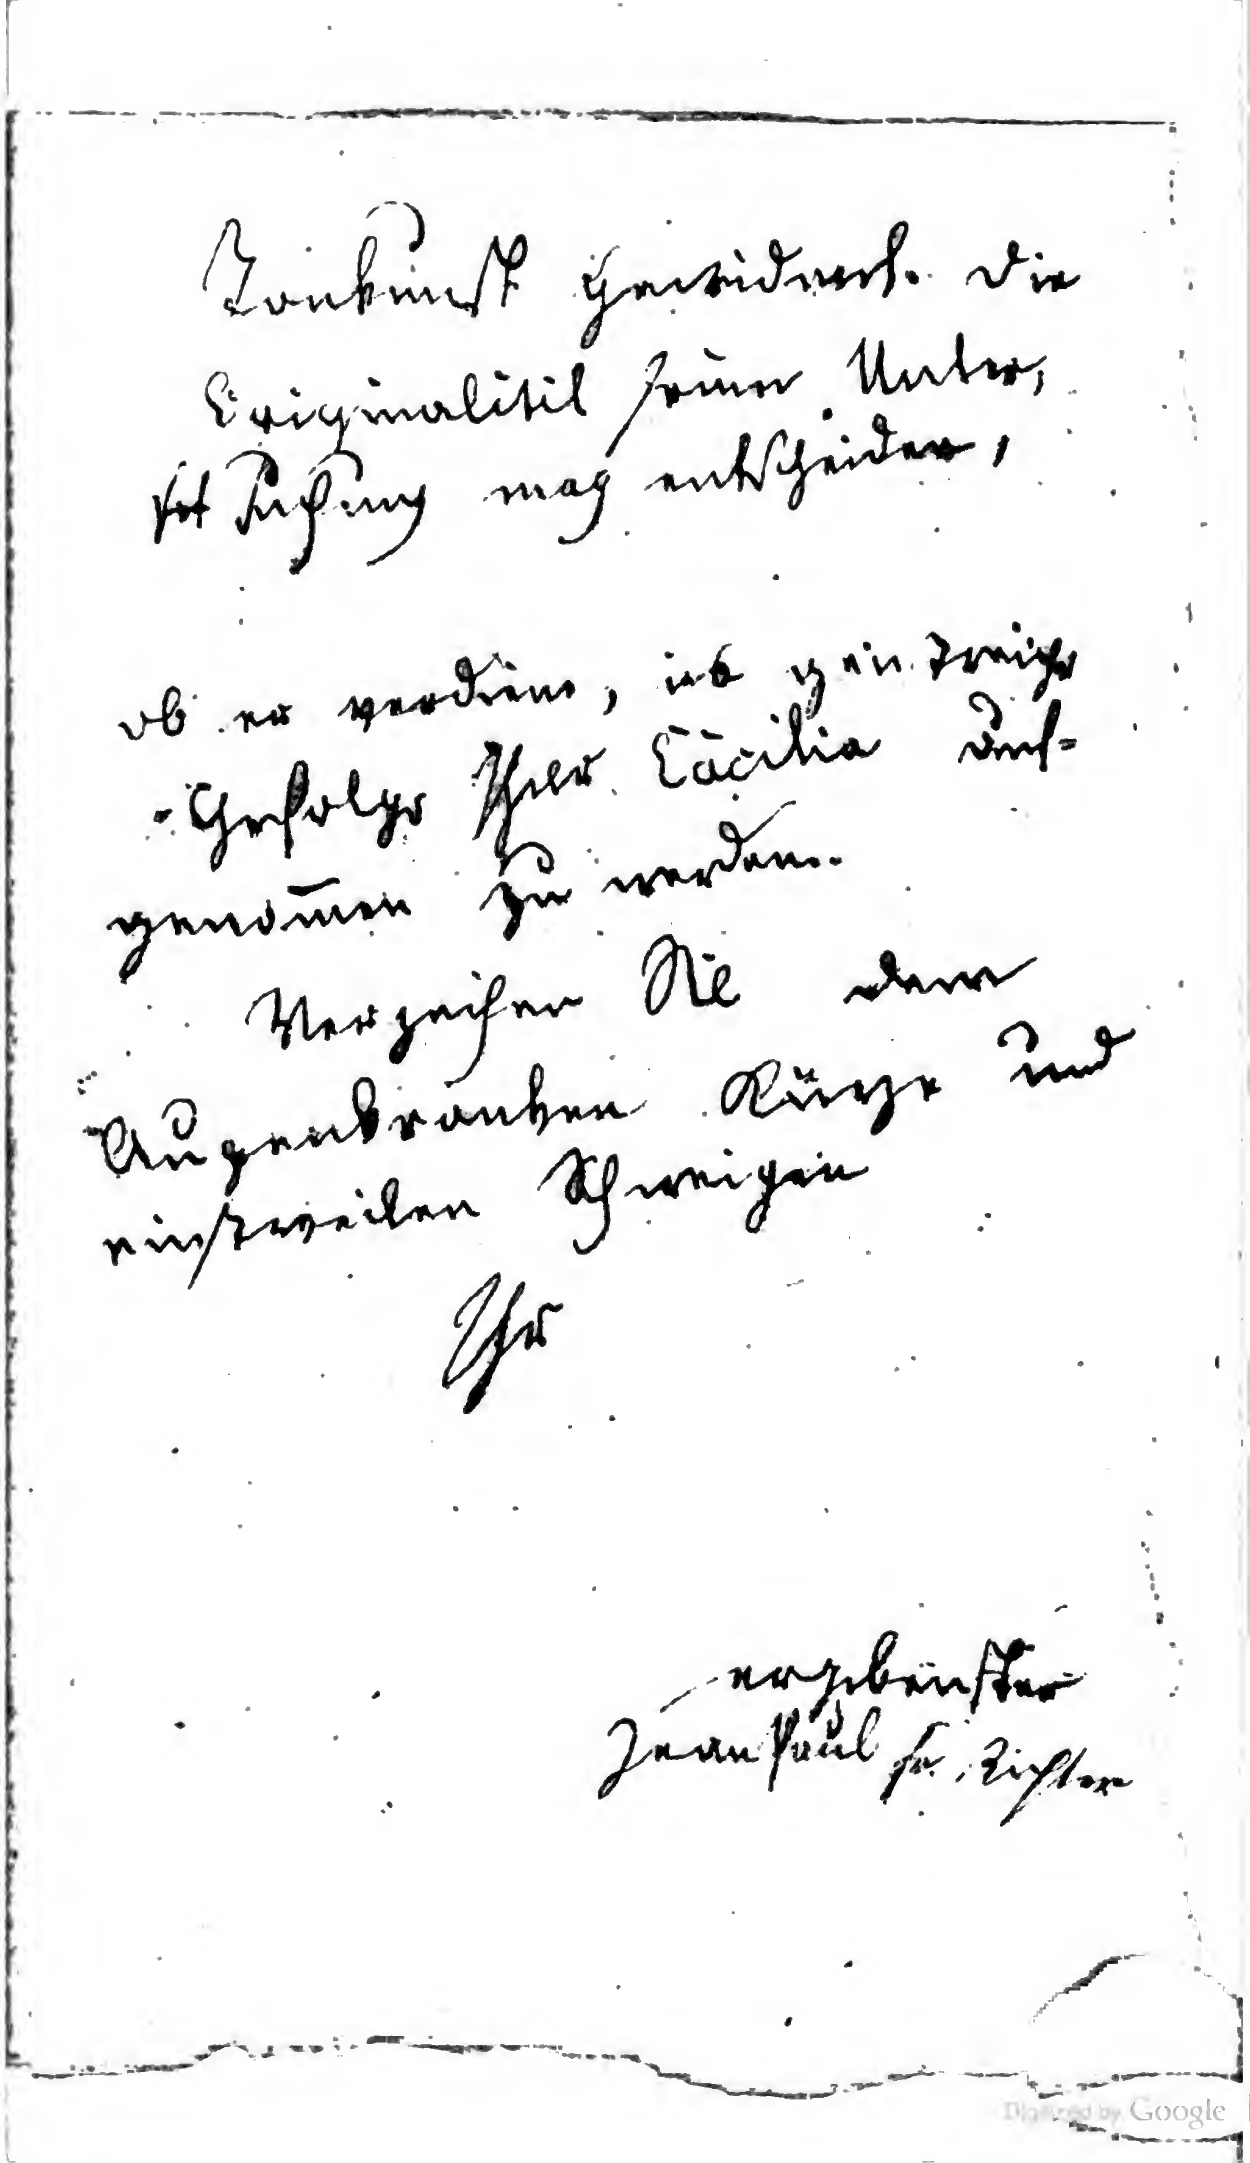 Tonkunst Heinroth. Die
Originalität seiner Unter,
suchung mag entscheiden,
ob er verdiene, ins geistreiche
Gefolge Ihrer Cäcilia auf=
genom̄en zu werden.
Verzeihen Sie dem
Augenkranken Kürze und
einstweilen Schweigen
Ihr
ergebenster
Jean Paul Fr. Richter
Digitized by Google